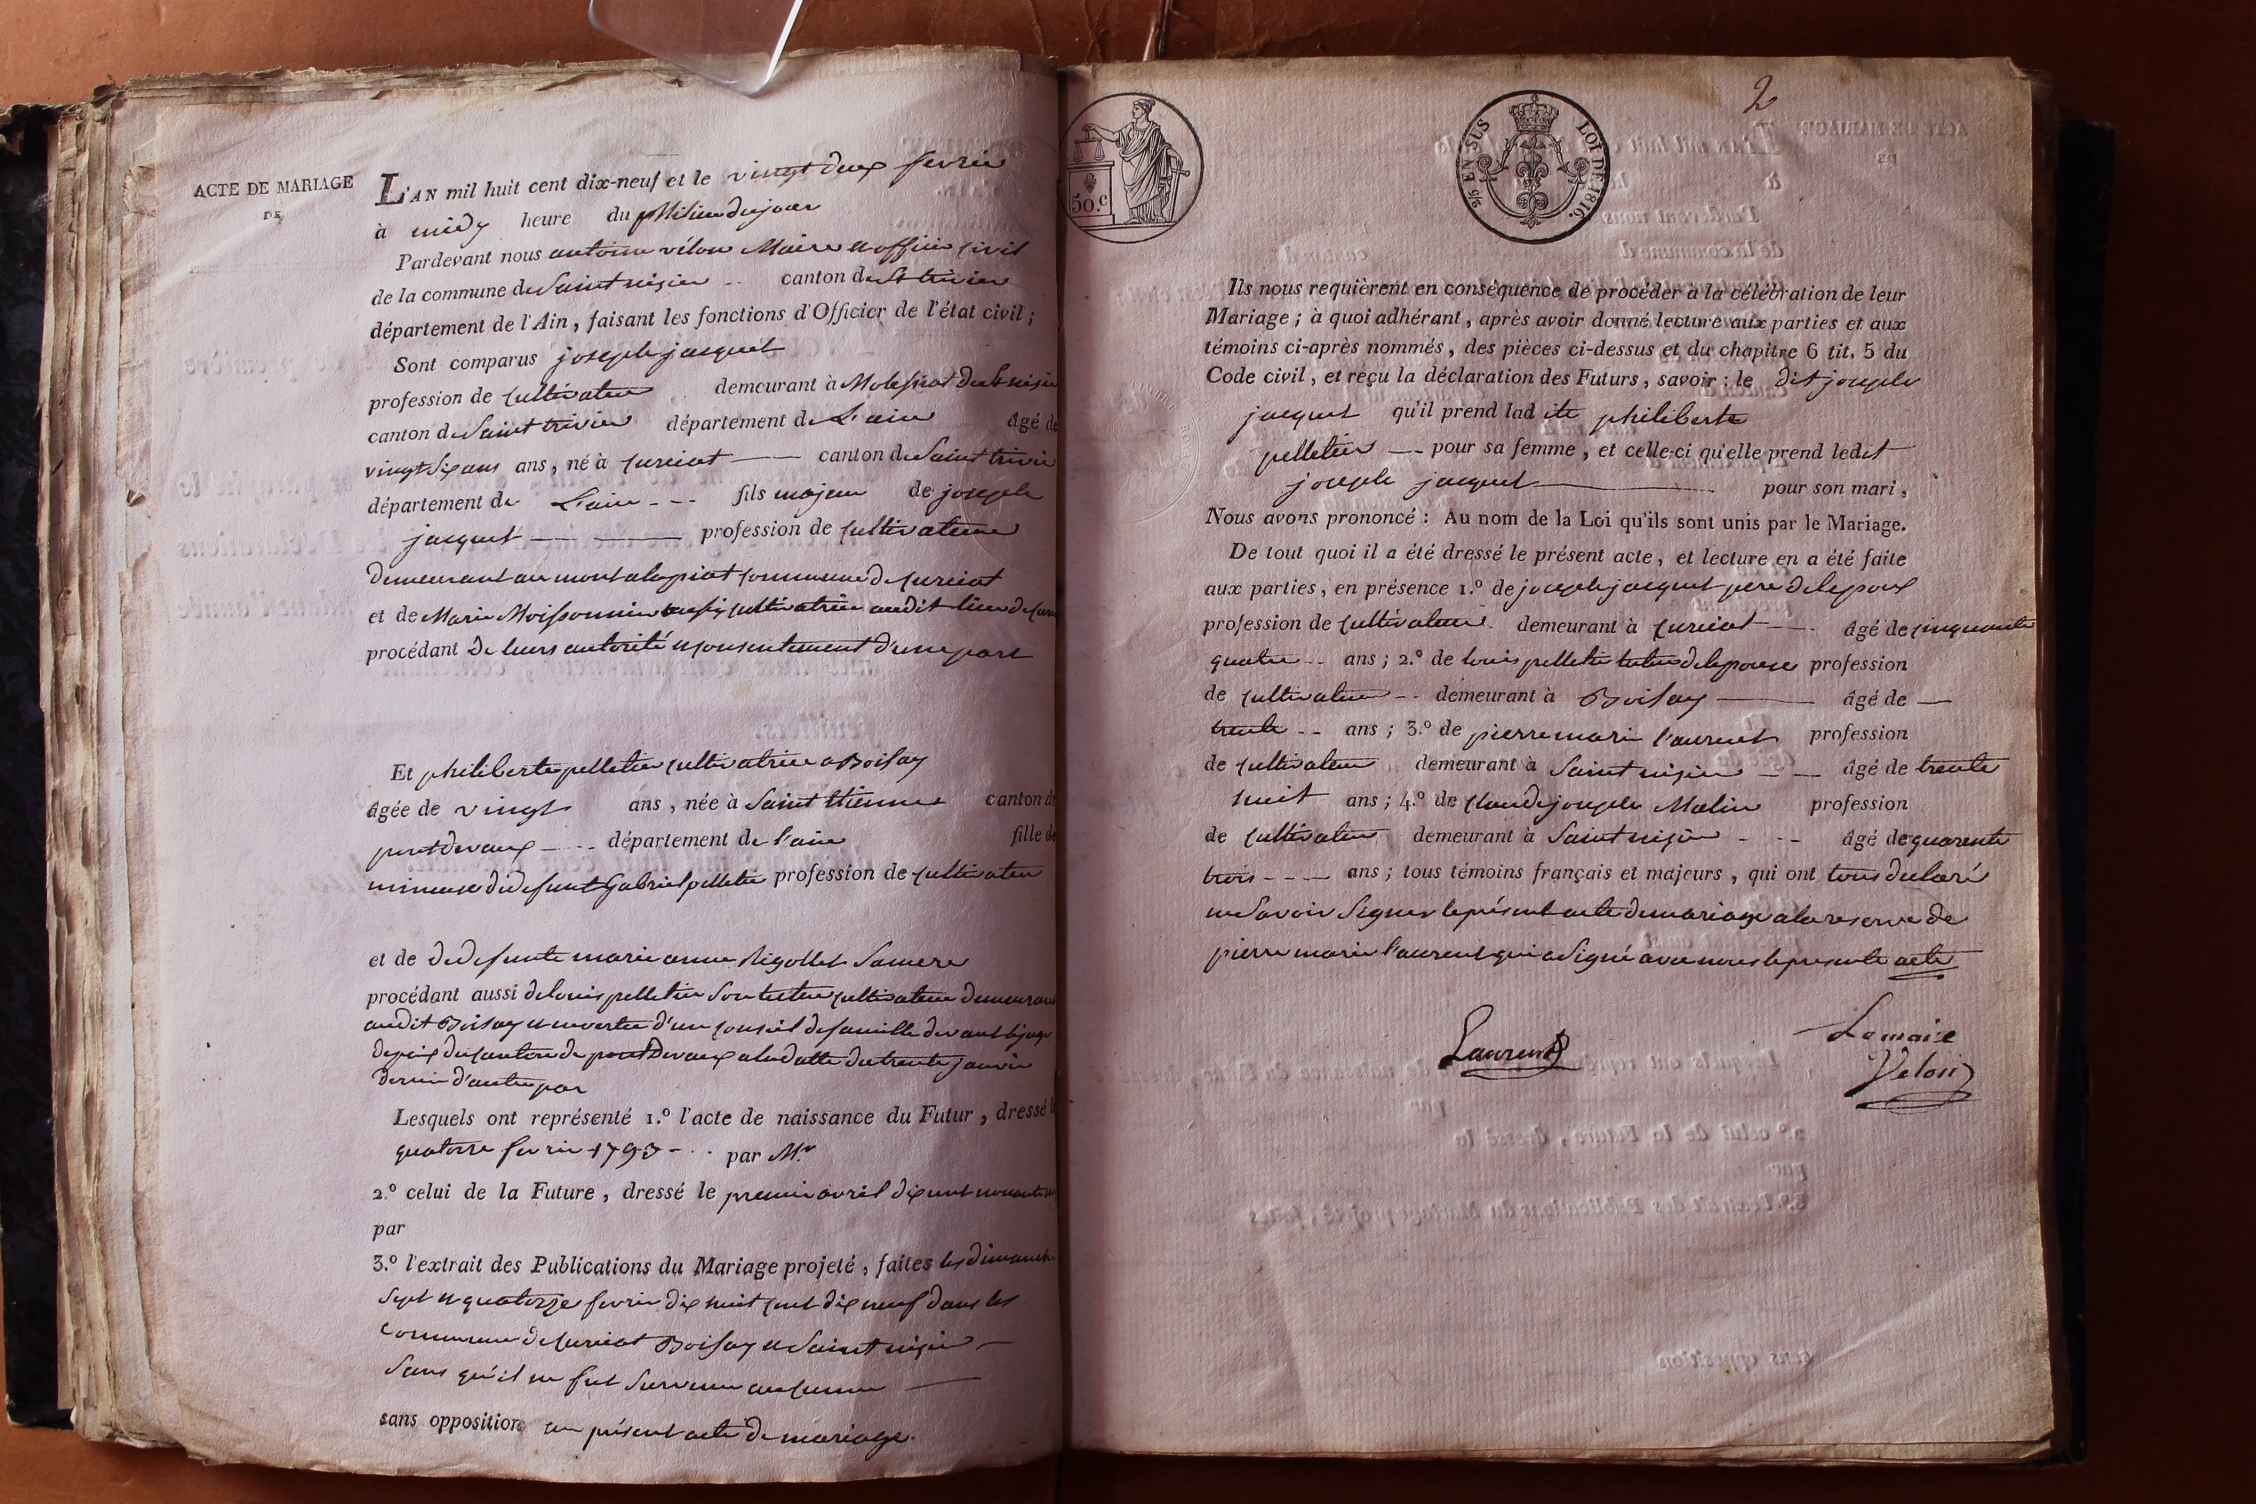 ACTE DE MARIAGE
DE
L'AN mil huit cent dix-neuf et le vingt deux fevrier
à midy heure du Milieu du jour
Pardevant nous antoine vélon Maire et officier civil
de la commune de Saint nizier -- canton de St trivier
département de l'Ain, faisant les fonctions d'Officier de l'état civil;
Sont comparus joseph jacquet
profession de cultivateur demeurant à Molissiat de St nizier
canton de Saint trivier département de L'ain âgé de
vingt six ans ans, né à Cureiat — canton de Saint trivier
département de L'ain --- fils majeur de joseph
jacquet — — profession de Cultivateur
demeurant au commune de Cureiat
et de Marie Moissonnier aussy cultivatrice audit lieu de
procédant De leurs autorité et consentement d'une part
Et philiberte pelletier cultivatrice a Boissay
âgée de vingt ans, née à Saint Etienne canton de
pontdevaux --- département de l'ain fille de
mineuse de defunt Gabriel pelletier profession de cultivateur
et de De defunte marie anne Rigollet Samere
procédant aussi de louis pelletier Son tuteur cultivateur demeurant
audit Boissay et en vertu d'un conseil de famille devant le juge
de paix du canton de pontDevaux a la datte du trente janvier
dernier d'autre par
Lesquels ont représenté 1.º l'acte de naissance du Futur, dressé le
quatorze fevrier 1793 - . . par M.r
2.º celui de la Future, dressé le premier avril dix
par
3.º l'extrait des Publications du Mariage projeté, faites les dimanche
Sept et quatorze fevrier dix huit cent dix neuf dans les
commune de Cureiat Boissay et Saint nizier —
Sans qu'il en fut Survenu aucunne —
sans opposition au présent acte de mariage.
50.c
2/5 EN SUS LOI DE 1816.
2
Ils nous requièrent en conséquence de procéder à la célébration de leur
Mariage; à quoi adhérant, après avoir donné lecture aux parties et aux
témoins ci-après nommés, des pièces ci-dessus et du chapitre 6 tit. 5 du
Code civil, et reçu la déclaration des Futurs, savoir: le dit joseph
jacquet qu'il prend lad ite philiberte
pelletier -- pour sa femme, et celle-ci qu'elle prend ledit
joseph jacquet — pour son mari,
Nous avons prononcé: Au nom de la Loi qu'ils sont unis par le Mariage.
De tout quoi il a été dressé le présent acte, et lecture en a été faite
aux parties, en présence 1.º de joseph jacquet pere de lepoux
profession de cultivateur demeurant à Cureiat — âgé de cinquante
quatre -- ans; 2.º de louis pelletier tuteur de lepouse profession
de cultivateur -- demeurant à Boissay — âgé de —
trente -- ans; 3.º de pierre marie l'aurent profession
de cultivateur demeurant à Saint nizier -- — âgé de trente
huit ans; 4.º de claude joseph Malin profession
de cultivateur demeurant à Saint nizier - -- âgé de quarente
trois --- — ans; tous témoins français et majeurs, qui ont tous declaré
ne Savoir Signer le présent acte de mariage a la reserve de
pierre marie l'aurent qui a Signé avec nous le presente acte
Laurent
Le maire
Velon